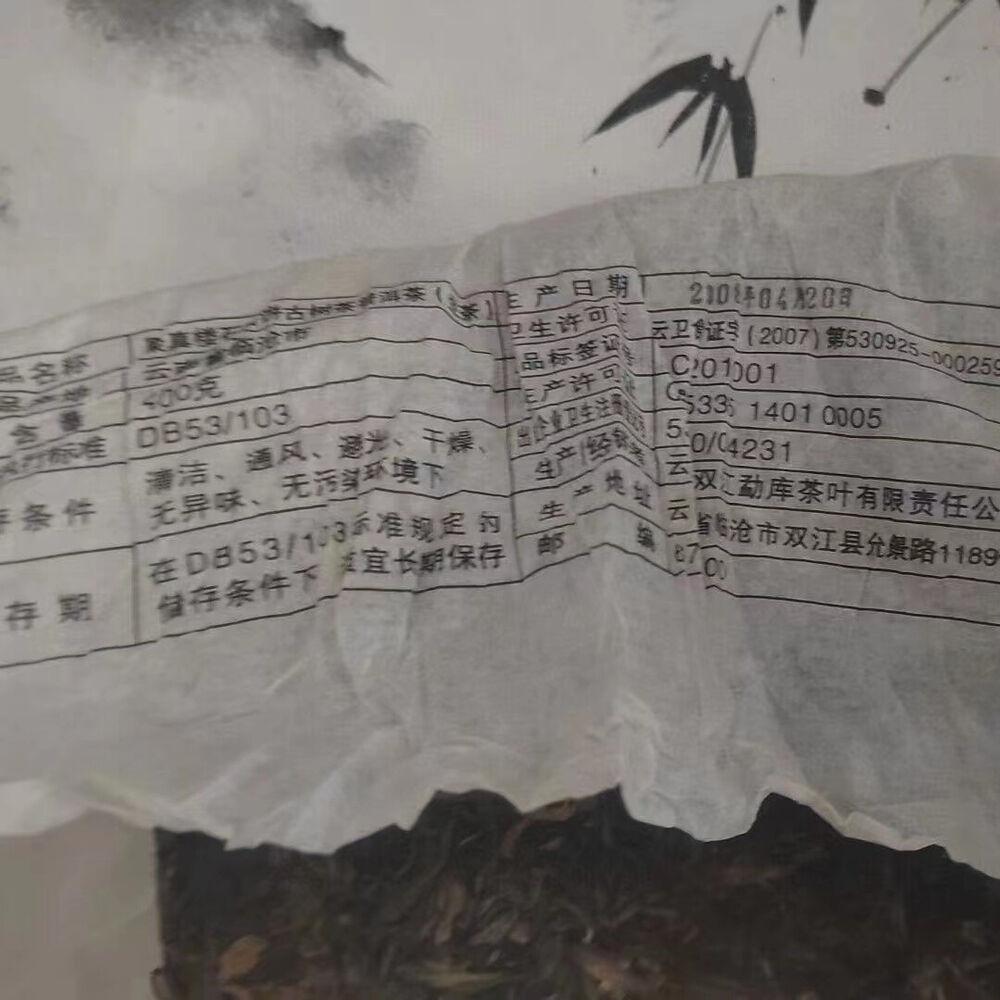 品名称
古树茶普洱茶(
茶)
云南省临沧市
含量
400克
执行标准
DB53/103
存条件
清洁、通风、避光、干燥、
无异味、无污染环境下
存期
在DB53/103标准规定的
储存条件下适宜长期保存
生产日期
年04月20日
卫生许可证
云卫食证字(2007)第530925-000259
品标签认
01001
生产许可证
1401 0005
出企业卫生注
4231
生产/经销
云 双江勐库茶叶有限责任公
生产地址
云 省临沧市双江县允景路1189
邮编